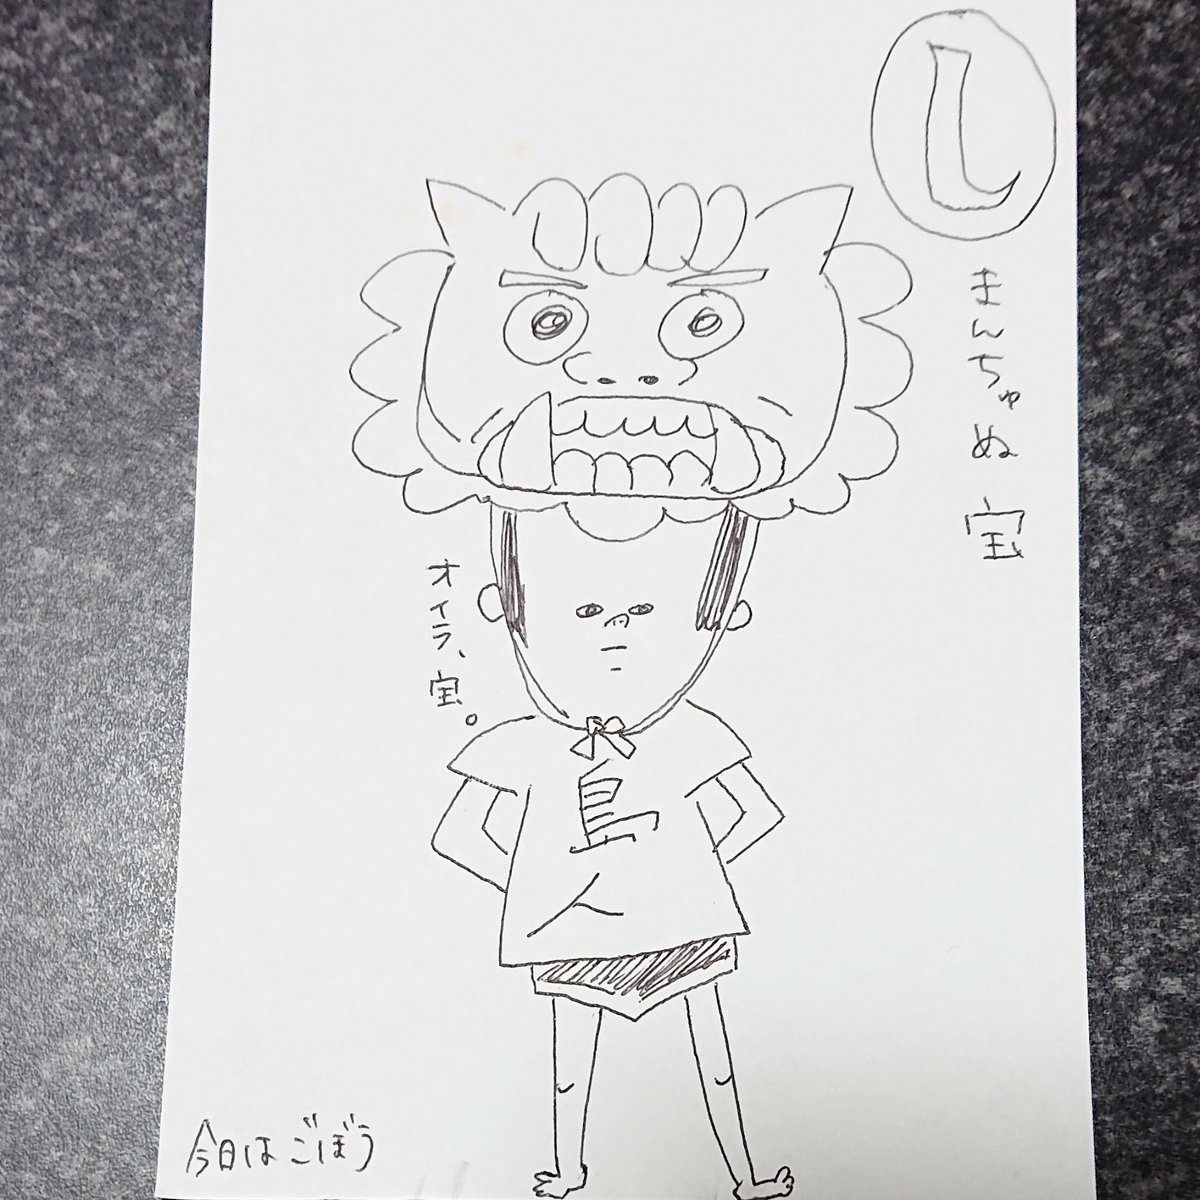 し
まんちゅぬ宝
オイラ、宝。
島
人
今日はごぼう